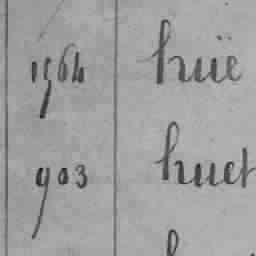 1564 huë
903 huet